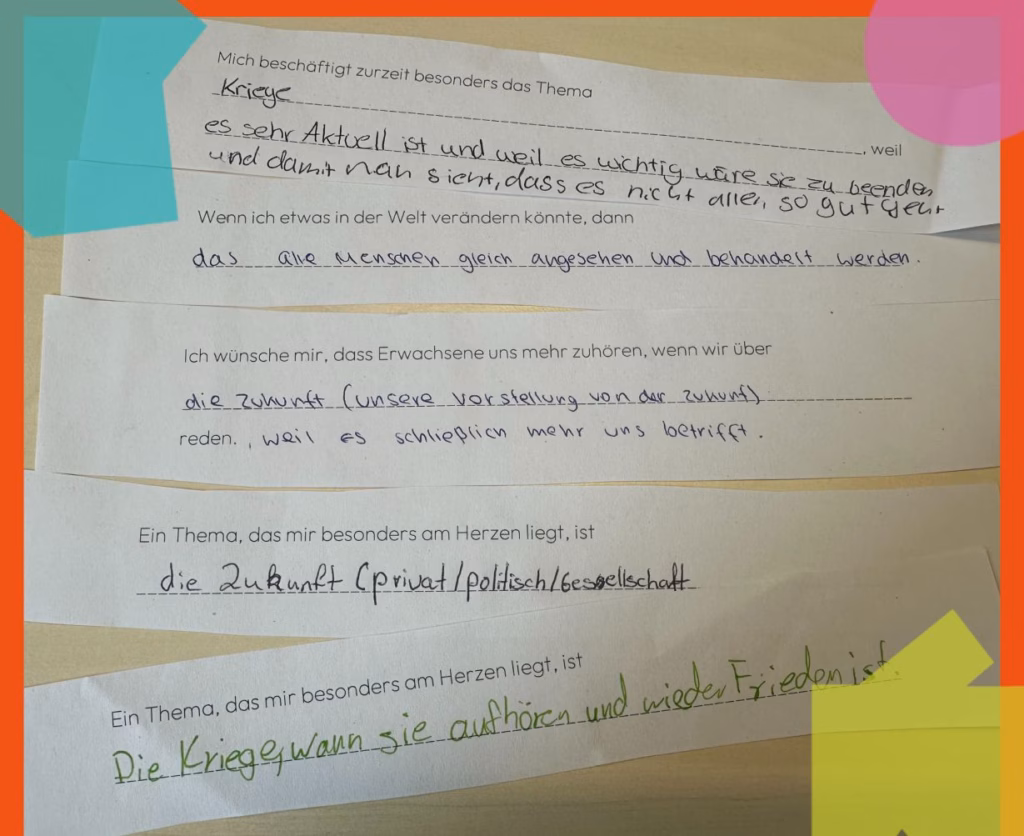 Mich beschäftigt zurzeit besonders das Thema
Kriege
, weil
es sehr Aktuell ist und weil es wichtig wäre sie zu beenden
und damit man sieht, dass es nicht allen so gut geht
Wenn ich etwas in der Welt verändern könnte, dann
das alle Menschen gleich angesehen und behandelt werden.
Ich wünsche mir, dass Erwachsene uns mehr zuhören, wenn wir über
die Zukunft (unsere Vorstellung von der Zukunft)
reden. , weil es schließlich mehr uns betrifft.
Ein Thema, das mir besonders am Herzen liegt, ist
die Zukunft (privat/politisch/Gesellschaft
Ein Thema, das mir besonders am Herzen liegt, ist
Die Kriege, wann sie aufhören und wieder Frieden ist.